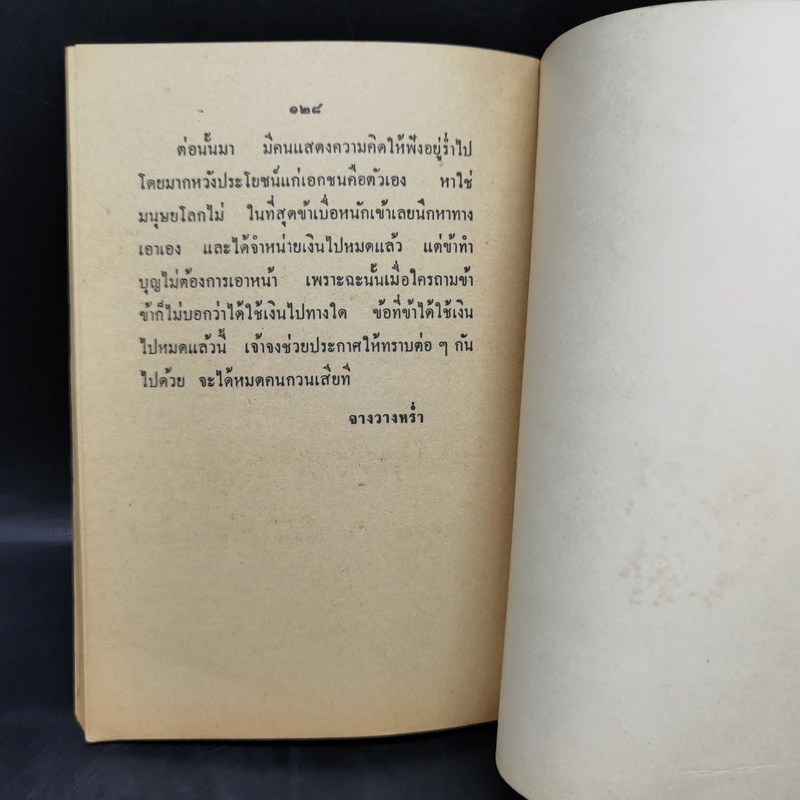 ๑๒๘
ต่อนั้นมา มีคนแสดงความคิดให้ฟังอยู่ร่ำไป
โดยมากหวังประโยชน์แก่เอกชนคือตัวเอง หาใช่
มนุษยโลกไม่ ในที่สุดข้าเบื่อหนักเข้าเลยนึกหาทาง
เอาเอง และได้จำหน่ายเงินไปหมดแล้ว แต่ข้าทำ
บุญไม่ต้องการเอาหน้า เพราะฉะนั้นเมื่อใครถามข้า
ข้าก็ไม่บอกว่าได้ใช้เงินไปทางใด ข้อที่ข้าได้ใช้เงิน
ไปหมดแล้วนี้ เจ้าจงช่วยประกาศให้ทราบต่อ ๆ กัน
ไปด้วย จะได้หมดคนกวนเสียที
จางวางหร่ำ